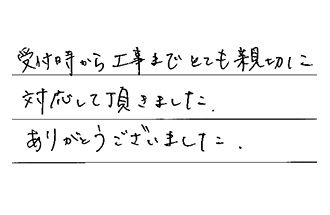 受付時から工事までとても親切に
対応して頂きました.
ありがとうございました.